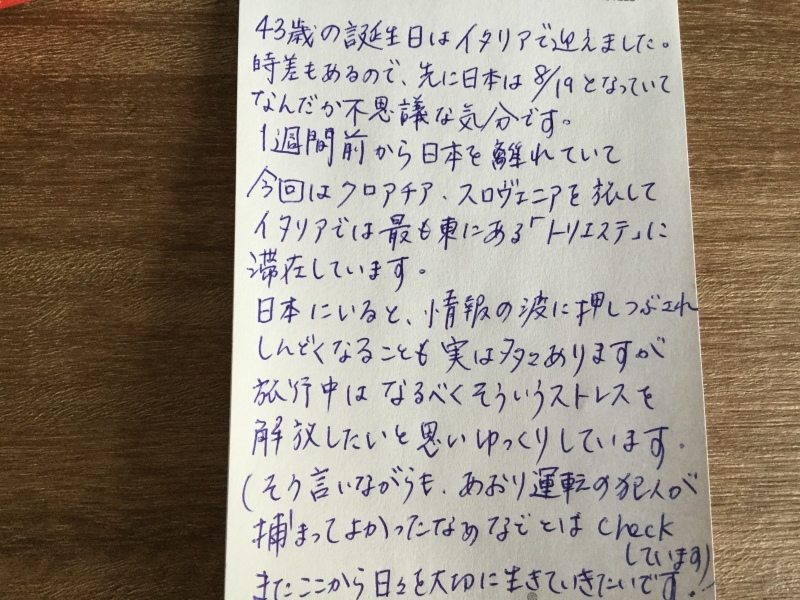 43歳の誕生日はイタリアで迎えました。
時差もあるので、先に日本は8/19となっていて
なんだか不思議な気分です。
1週間前から日本を離れていて
今回はクロアチア、スロヴェニアを旅して
イタリアでは最も東にある「トリエステ」に
滞在しています。
日本にいると、情報の波に押しつぶされ
しんどくなることも実は多々ありますが
旅行中はなるべくそういうストレスを
解放したいと思いゆっくりしています。
(そう言いながらも、あおり運転の犯人が
捕まってよかったなぁなどとはcheck
しています)
またここから日々を大切に生きていきたいです。